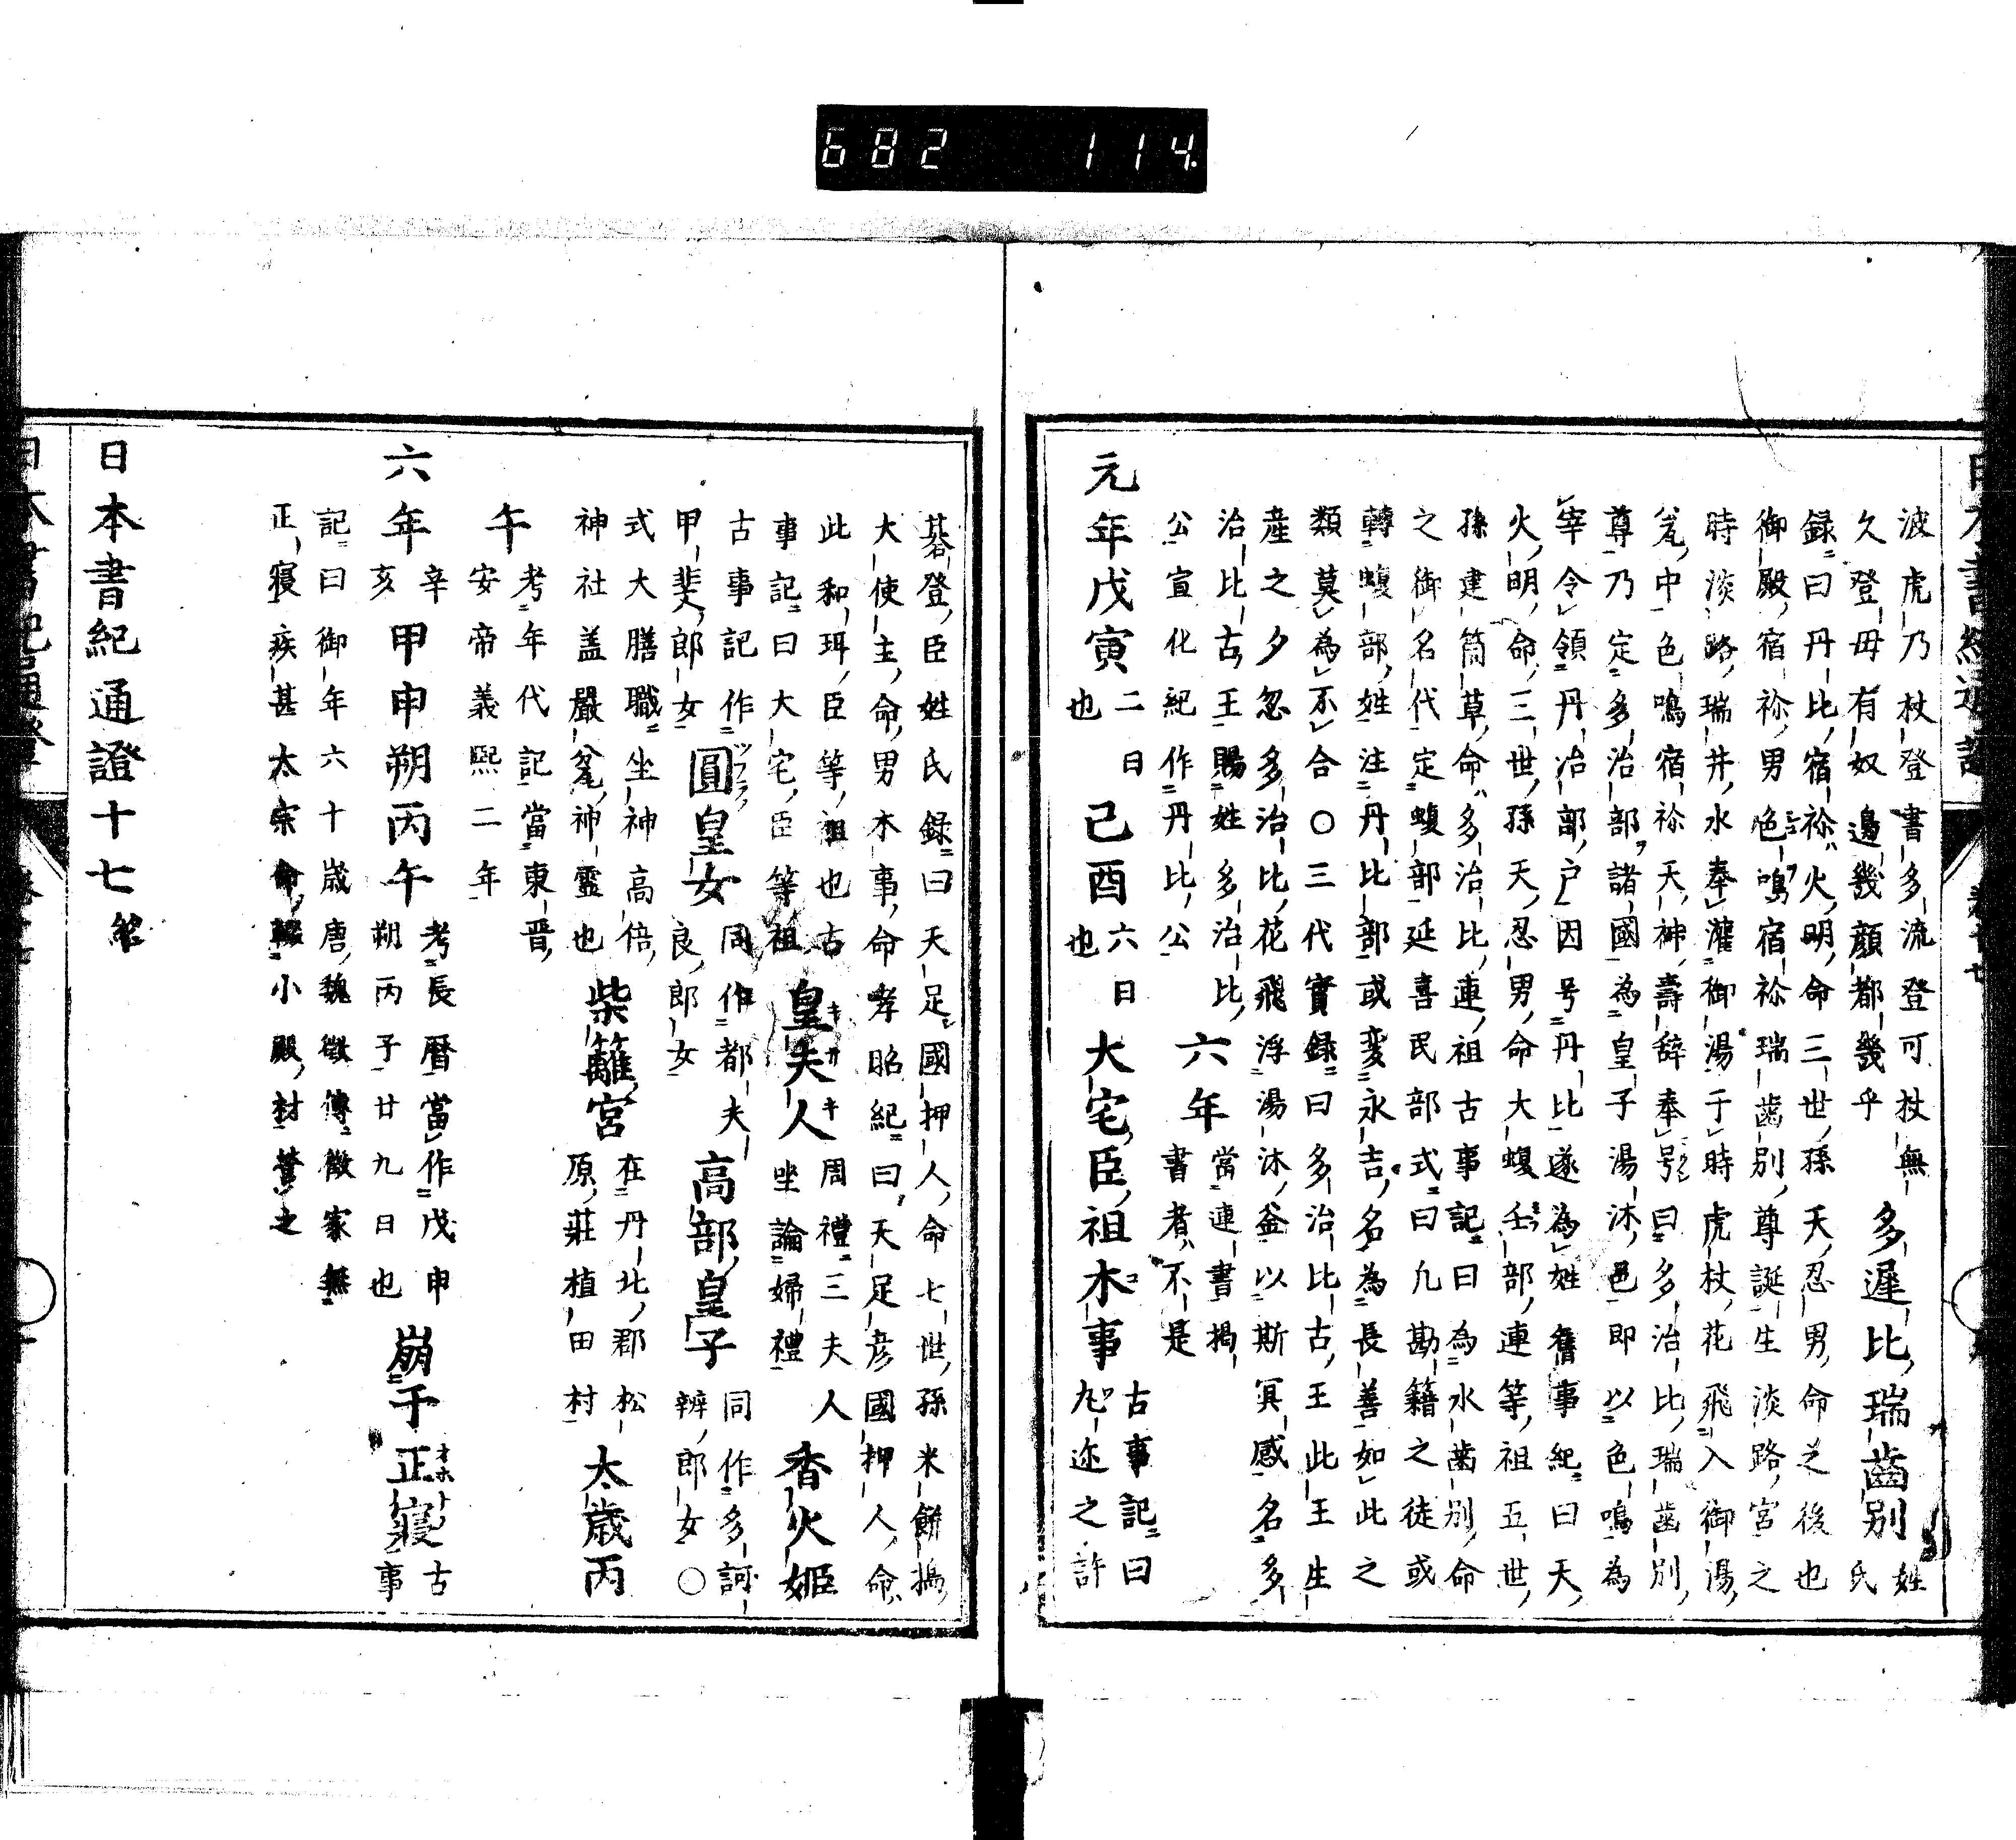 682 114.
波虎乃杖登書多流登可杖無
久登毋有奴邉幾顔都幾乎
多遲比瑞齒別
姓
氏
録曰丹比宿祢火明命三世孫天忍男命之後也
御殿宿祢男色鳴宿祢瑞齒別尊誕生淡路宮之
時淡路瑞井水奉灌御湯于時虎杖花飛入御湯
瓫中色鳴宿祢天神壽辞奉号曰多治比瑞齒別
尊乃定多治部諸國為皇子湯沐邑即以色鳴為
宰令領丹治部戸因号丹比遂為姓舊事紀曰天
火明命三世孫天忍男命大蝮壬部連等祖五世
孫建筒草命多治比連祖古事記曰為水齒別命
之御名代定蝮部延喜民部式曰凢勘籍之徒或
轉蝮部姓注丹比部或変永吉名為長善如此之
類莫為不合〇三代實録曰多治比古王此王生
産之夕忽多治比花飛浮湯沐釜以斯冥感名多
治比古王賜姓多治比
公宣化紀作丹比公
六年
當連書掲
書者不是
元年戊寅
二日
也
己酉
六日
也
大宅臣祖木事
古事記曰
丸迩之許
碁登臣姓氏録曰天足國押人命七世孫米餅搗
大使主命男木事命孝昭紀曰天足彦國押人命
此和珥臣等祖也古
事記曰大宅臣等祖
皇夫人
周禮三夫人
坐論婦禮
香火姫
古事記作
甲斐郎女
圓皇女
同作都夫
良郎女
高部皇子
同作多訶
辨郎女〇
式大膳職坐神高倍
神社盖嚴瓫神靈也
柴籬宮
在丹北郡松
原莊植田村
太歳丙
午
考年代記當東晋
安帝義熙二年
六年
辛
亥
甲申朔丙午
考長暦當作戊申
朔丙子廿九日也
崩于正寝
古
事
記曰御年六十歳唐魏徴傳徴家無
正寝疾甚太宗命輟小殿材營之
日本書紀通證十七終